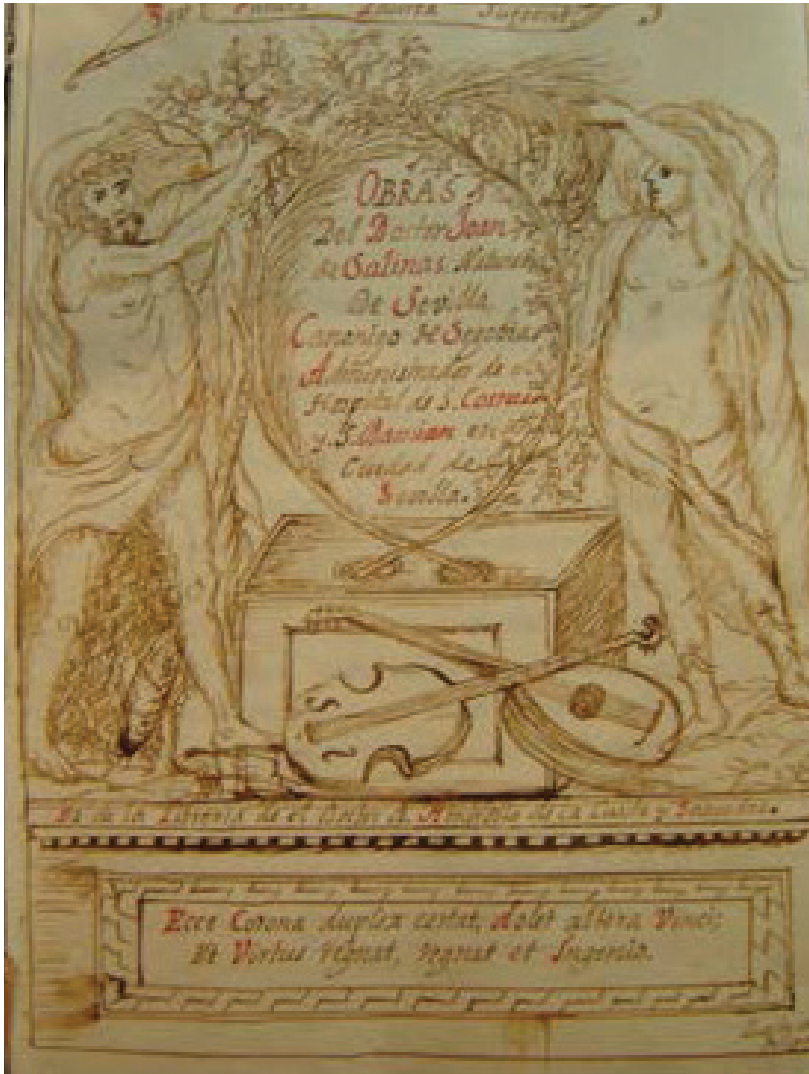 OBRAS
Del Doctor Joan
de Salinas Natural
De Sevilla
Canonigo de Segovia
Administrador de el
Hospital de S. Cosme
y S. Damian en
Ciudad de
Sevilla.
Es de la Libreria de el Doctor D. Ambrosio de la Cuesta y Saavedra.
Ecce Corona duplex certat, dolet altera Vinci;
Et Virtus regnat, regnat et Ingenio.